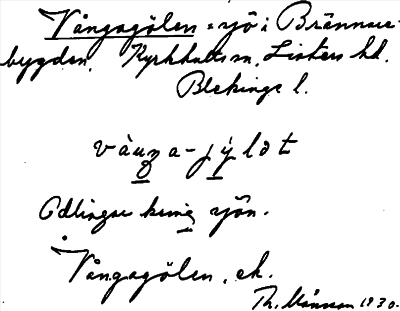 Vångagölen = sjö i Brännare-
bygden, Kyrkhults sn, Listers hd.
Blekinge l.
Odlingar kring sjön.
Vångagölen, ek.
Th. Månsson 1930.